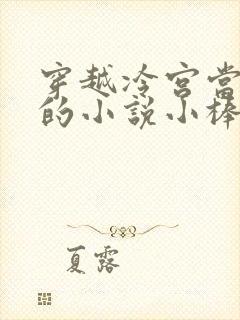 穿越冷宫当
的小说小棒
夏露